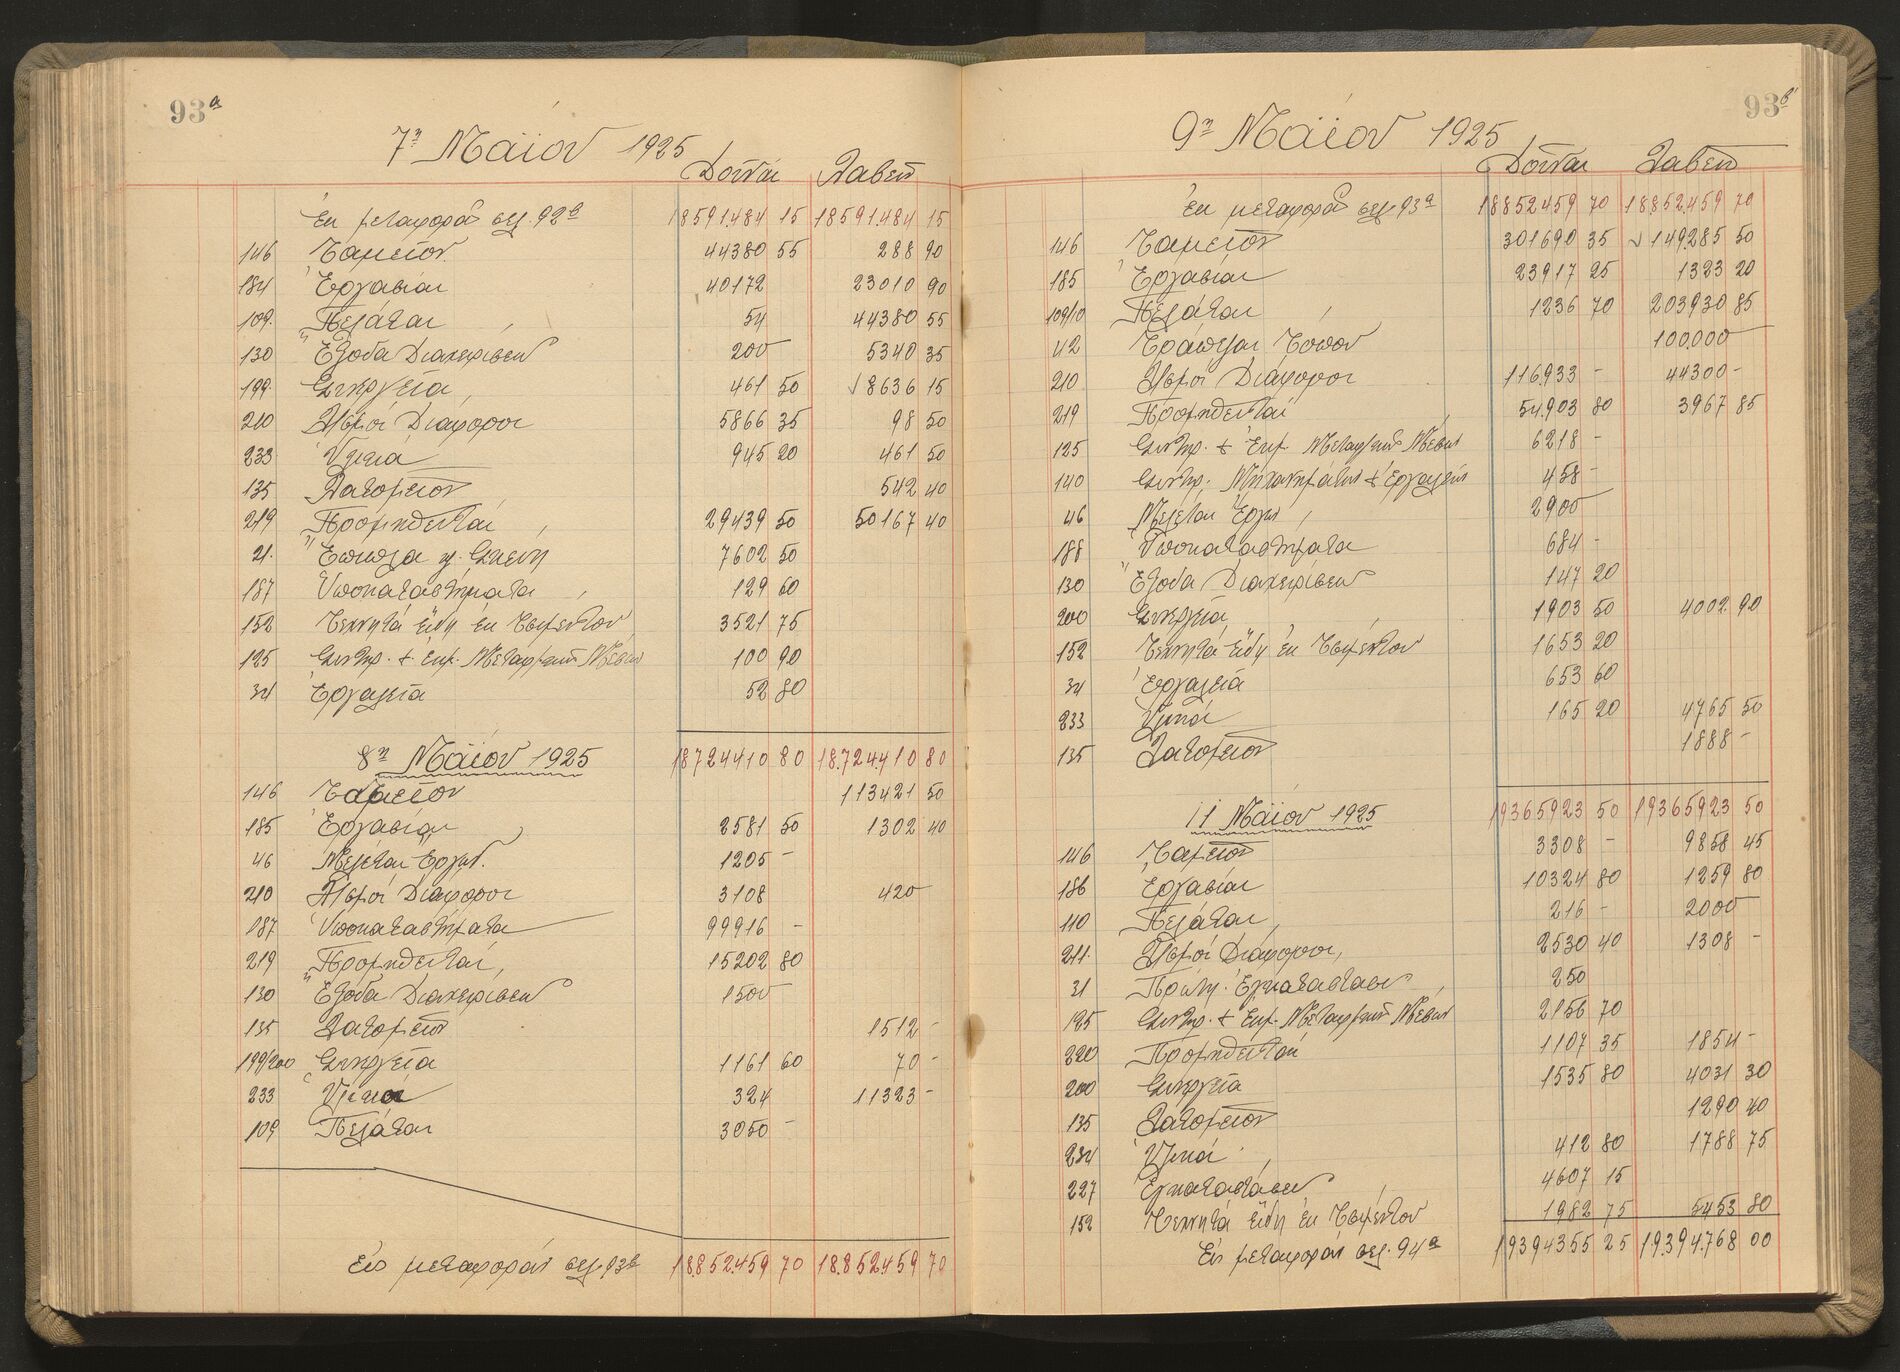 93α
7η Μαΐου 1925
Δοῦναι Λαβεῖν
Ἐκ μεταφορᾶς σελ. 92β 18591.484 15 18591.484 15
146 Ταμεῖον 44380 55 288 90
184 Ἐργασίαι 40172 23010 90
109. Πελάται 54 44380 55
130 Ἔξοδα Διαχειρίσεως 200 5340 35
199 Συνεργεῖα 461 50 8636 15
210 Λ/σμοί Διάφοροι 5866 35 98 50
233 Ὑλικά 945 20 461 50
135 Λατομεῖον 542 40
219 Προμηθευταί 29439 50 50167 40
21. Ἔπιπλα κ. Σκεύη 7602 50
187 Ὑποκαταστήματα 129 60
152 Τεχνητά εἴδη ἐκ Τσιμέντου 3521 75
125 Συντηρ. + Ἐκμ. Μεταφ/κῶν Μέσων 100 90
34 Ἐργαλεῖα 52 80
18724410 80 18.724.410 80
8η Μαΐου 1925
146 Ταμεῖον 113421 50
185 Ἐργασίαι 2581 50 1302 40
46 Μελέται Ἔργων. 1205 –
210 Λ/σμοί Διάφοροι 3108 420
187 Ὑποκαταστήματα 99916 –
219 Προμηθευταί 15202 80
130 Ἔξοδα Διαχειρίσεως 1500
135 Λατομεῖον 1512 –
199/200 Συνεργεῖα 1161 60 70 –
233 Ὑλικά 324 11323 –
109 Πελάται 3050 –
Εἰς μεταφοράν σελ. 93β 18.852.459 70 18.852.459 70
93β
9η Μαΐου 1925
Δοῦναι Λαβεῖν
Ἐκ μεταφορᾶς σελ. 93α 18852459 70 18.852.459 70
146 Ταμεῖον 301690 35 149.285 50
185 Ἐργασίαι 23917 25 1323 20
109/10 Πελάται 1236 70 203930 85
42 Τράπεζαι Τόπου 100.000
210 Λ/σμοί Διάφοροι 116.933 – 44300 –
219 Προμηθευταί 54.903 80 3967 85
125 Συντηρ. + Ἐκμ. Μεταφ/κῶν Μέσων 6218 –
140 Συντηρ. Μηχανημάτων + Ἐργαλείων 458 –
46 Μελέται Ἔργων 2900
188 Ὑποκαταστήματα 684 –
130 Ἔξοδα Διαχειρίσεως 147 20
200 Συνεργεῖα 1903 50 4002 90
152 Τεχνητά εἴδη ἐκ Τσιμέντου 1653 20
34 Ἐργαλεῖα 653 60
233 Ὑλικά 165 20 4765 50
135 Λατομεῖον 1888 –
19365923 50 19365923 50
11 Μαΐου 1925
146 Ταμεῖον 3308 – 9858 45
186 Ἐργασίαι 10324 80 1259 80
110 Πελάται 216 – 2000
211. Λ/σμοί Διάφοροι, 2530 40 1308 –
31 Πρώτη Ἐγκατάστασις 250
125 Συντηρ. + Ἐκμ. Μεταφ/κῶν Μέσων 2156 70
220 Προμηθευταί 1107 35 1854 –
200 Συνεργεῖα 1535 80 4031 30
135 Λατομεῖον 1290 40
234 Ὑλικά 412 80 1788 75
227 Ἐγκαταστάσεις 4607 15
152 Τεχνητά εἴδη ἐκ Τσιμέντου 1982 75 5453 80
Εἰς μεταφοράν σελ. 94α 19394355 25 19.394.768 00